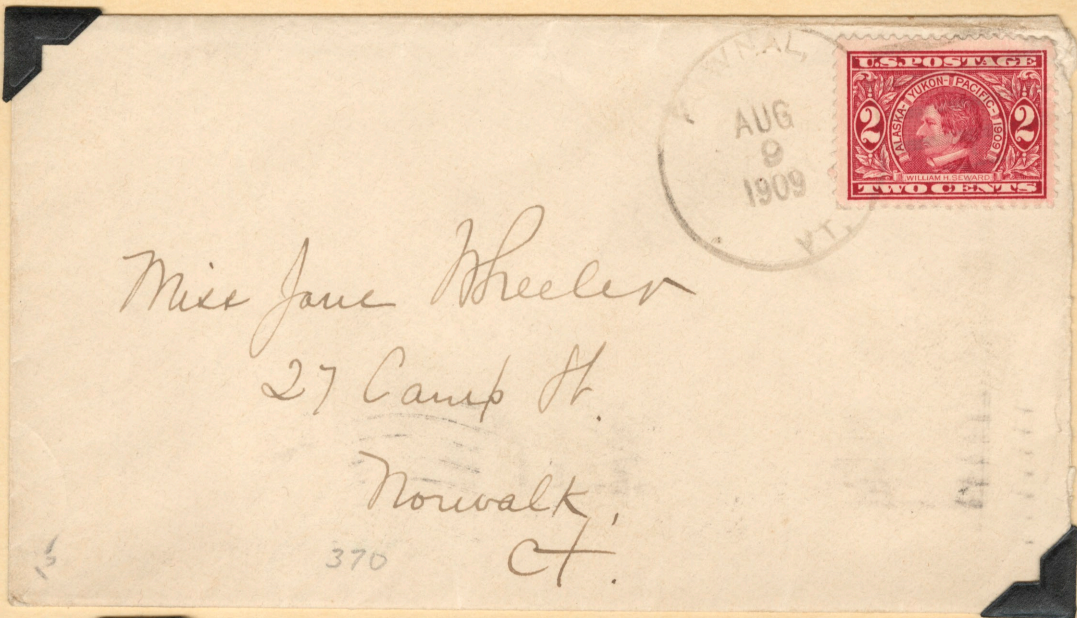 POWNAL,
AUG
9
1909
VT.
U.S. POSTAGE
ALASKA-YUKON-PACIFIC-1909
2 2
WILLIAM H. SEWARD
TWO CENTS
Miss Jane Wheeler
27 Camp St.
Norwalk,
Ct.
370